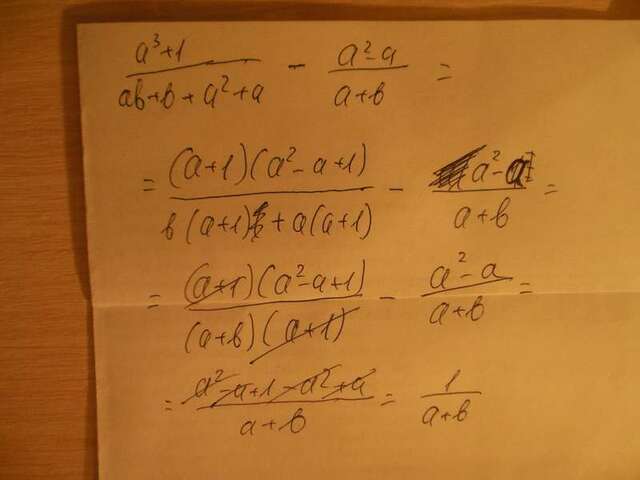 (a³+1)/(ab+b+a²+a) - (a²-a)/(a+b) =
= ((a+1)(a²-a+1))/(b(a+1)+a(a+1)) - (a²-a)/(a+b) =
= ((a+1)(a²-a+1))/((a+b)(a+1)) - (a²-a)/(a+b) =
= (a²-a+1-a²+a)/(a+b) = 1/(a+b)